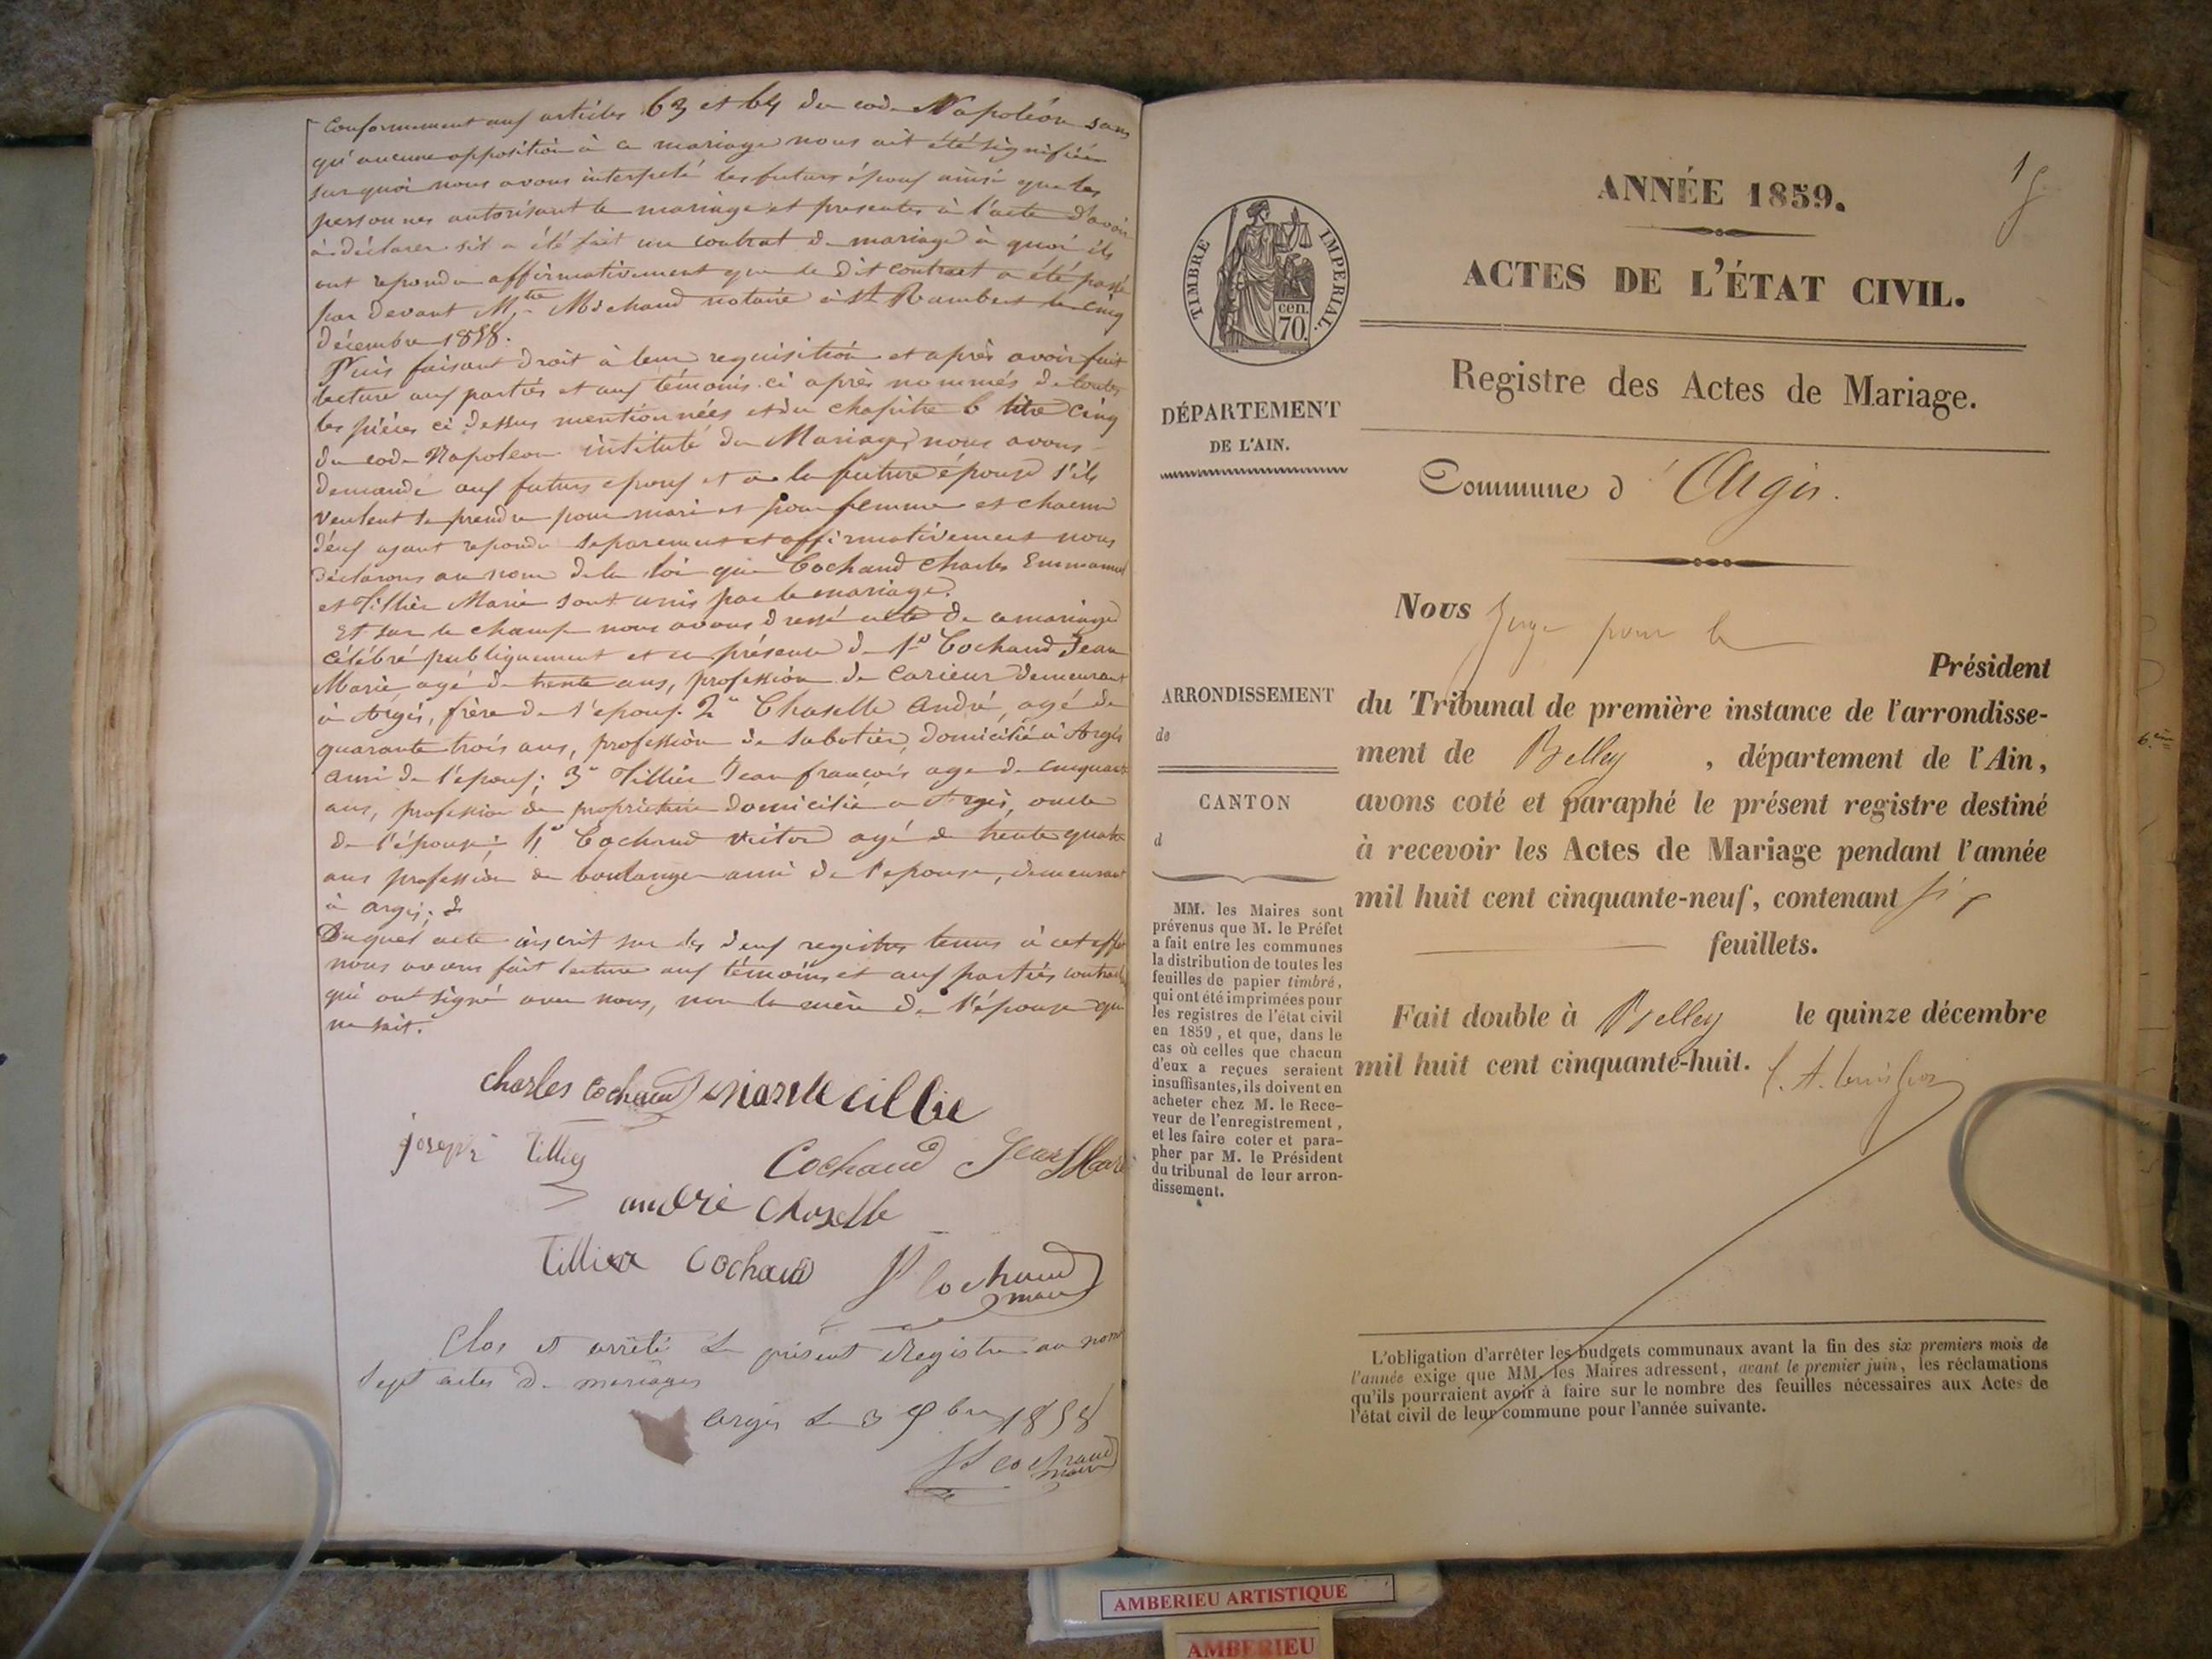 Conformement aux articles 63 et 64 du code Napoléon sans
qu'aucune opposition à ce mariage nous ait été signifiée
sur quoi nous avons interpelé les futurs époux ainsi que les
personnes autorisant le mariage et presentes à l'acte d'avoir
à déclarer s'il a été fait un contrat de mariage à quoi ils
ont repondu affirmativement que le dit contract a été passé
par devant Mtre Michaud notaire à St Rambert le cinq
décembre 1858.
Puis faisant droit à leur requisition et après avoir fait
lecture aux parties et aux témoins ci après nommés de toutes
les pièces ci dessus mentionnées et du chapitre 6 titre cinq
du code Napoleon intitulé du Mariage, nous avons
demandé aux futurs epoux et a la future épouse s'ils
veulent se prendre pour mari et pour femme et chacun
d'eux ayant repondu separement et affirmativement nous
déclarons au nom de la loi que Cochaud Charles Emmanuel
et Tillier Marie sont unis par le mariage.
Et sur le champ nous avons dressé acte de ce mariage
célébré publiquement et en présence de 1º Cochaud Jean
Marie, agé de trente ans, profession de carieur demeurant
à Argis, frère de l'epoux. 2º Choselle André, agé de
quarante trois ans, profession de sabotier, domicilié à Argis
ami de l'epoux; 3º Tillier Jean françois age de cinquante
ans, profession de proprietaire domicilié a Argis, oncle
de l'épouse; 4º Cochaud Victor agé de trente quatre
ans profession de boulanger ami de l'epouse, demeurant
à argis;
Duquel acte inscrit sur les deux registres tenus à cet effet
nous avons fait lecture aux témoins et aux parties contract
qui ont signé avec nous, non la mère de l'épouse qui
ne sait.
charles cochaud marie tillie
joseph Tilliey
Cochaud Jean Marie
andré choselle
Tillier Cochaud Cochaud
maire
Clos et arrêté le présent Registre au nom
sept actes de mariages
argis le 3 1858
cochaud
maire
1
ANNÉE 1859.
ACTES DE L'ÉTAT CIVIL.
TIMBRE IMPERIAL.
cen.
70.
Registre des Actes de Mariage.
DÉPARTEMENT
DE L'AIN.
Commune d'Argis.
Nous Juge pour le
Président
ARRONDISSEMENT
de
CANTON
d
du Tribunal de première instance de l'arrondisse-
ment de Belley , département de l'Ain,
avons coté et paraphé le présent registre destiné
à recevoir les Actes de Mariage pendant l'année
mil huit cent cinquante-neuf, contenant six
feuillets.
Fait double à Belley le quinze décembre
mil huit cent cinquante-huit.
MM. les Maires sont
prévenus que M. le Préfet
a fait entre les communes
la distribution de toutes les
feuilles de papier timbré,
qui ont été imprimées pour
les registres de l'état civil
en 1859, et que, dans le
cas où celles que chacun
d'eux a reçues seraient
insuffisantes, ils doivent en
acheter chez M. le Rece-
veur de l'enregistrement,
et les faire coter et para-
pher par M. le Président
du tribunal de leur arron-
dissement.
L'obligation d'arrêter les budgets communaux avant la fin des six premiers mois de
l'année exige que MM. les Maires adressent, avant le premier juin, les réclamations
qu'ils pourraient avoir à faire sur le nombre des feuilles nécessaires aux Actes de
l'état civil de leur commune pour l'année suivante.
AMBERIEU ARTISTIQUE
AMBERIEU